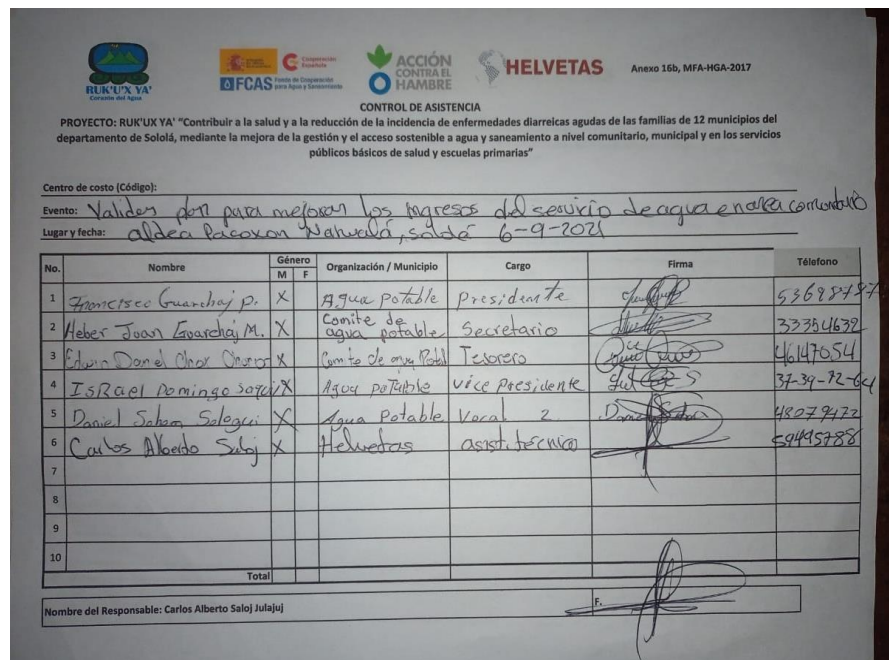 RUK'U'X YA'
Corazón del Agua
Cooperación Española
FCAS Fondo de Cooperación para Agua y Saneamiento
ACCIÓN CONTRA EL HAMBRE
HELVETAS
Anexo 16b, MFA-HGA-2017
CONTROL DE ASISTENCIA
PROYECTO: RUK'UX YA' "Contribuir a la salud y a la reducción de la incidencia de enfermedades diarreicas agudas de las familias de 12 municipios del
departamento de Sololá, mediante la mejora de la gestión y el acceso sostenible a agua y saneamiento a nivel comunitario, municipal y en los servicios
públicos básicos de salud y escuelas primarias"
Centro de costo (Código):
Evento: Validar plan para mejorar los ingresos del servicio de agua en area
Lugar y fecha: aldea Pacoxon Nahualá, 6-9-2021
No. Nombre Género M F Organización / Municipio Cargo Firma Télefono
1 Francisco Guarchaj p. X Agua Potable Presidente
2 Heber Juan Guarchaj M. X Comite de agua potable Secretario 33354632
3 Edwin Daniel X Comite de agua Tesorero 46147054
4 IsRael Domingo X Agua Potable vice Presidente
5 Daniel X Agua Potable Vocal 2 48079472
6 Carlos Alberto Saloj X Helvetas asist. técnico 59495788
7
8
9
10
Total
Nombre del Responsable: Carlos Alberto Saloj Julajuj F.